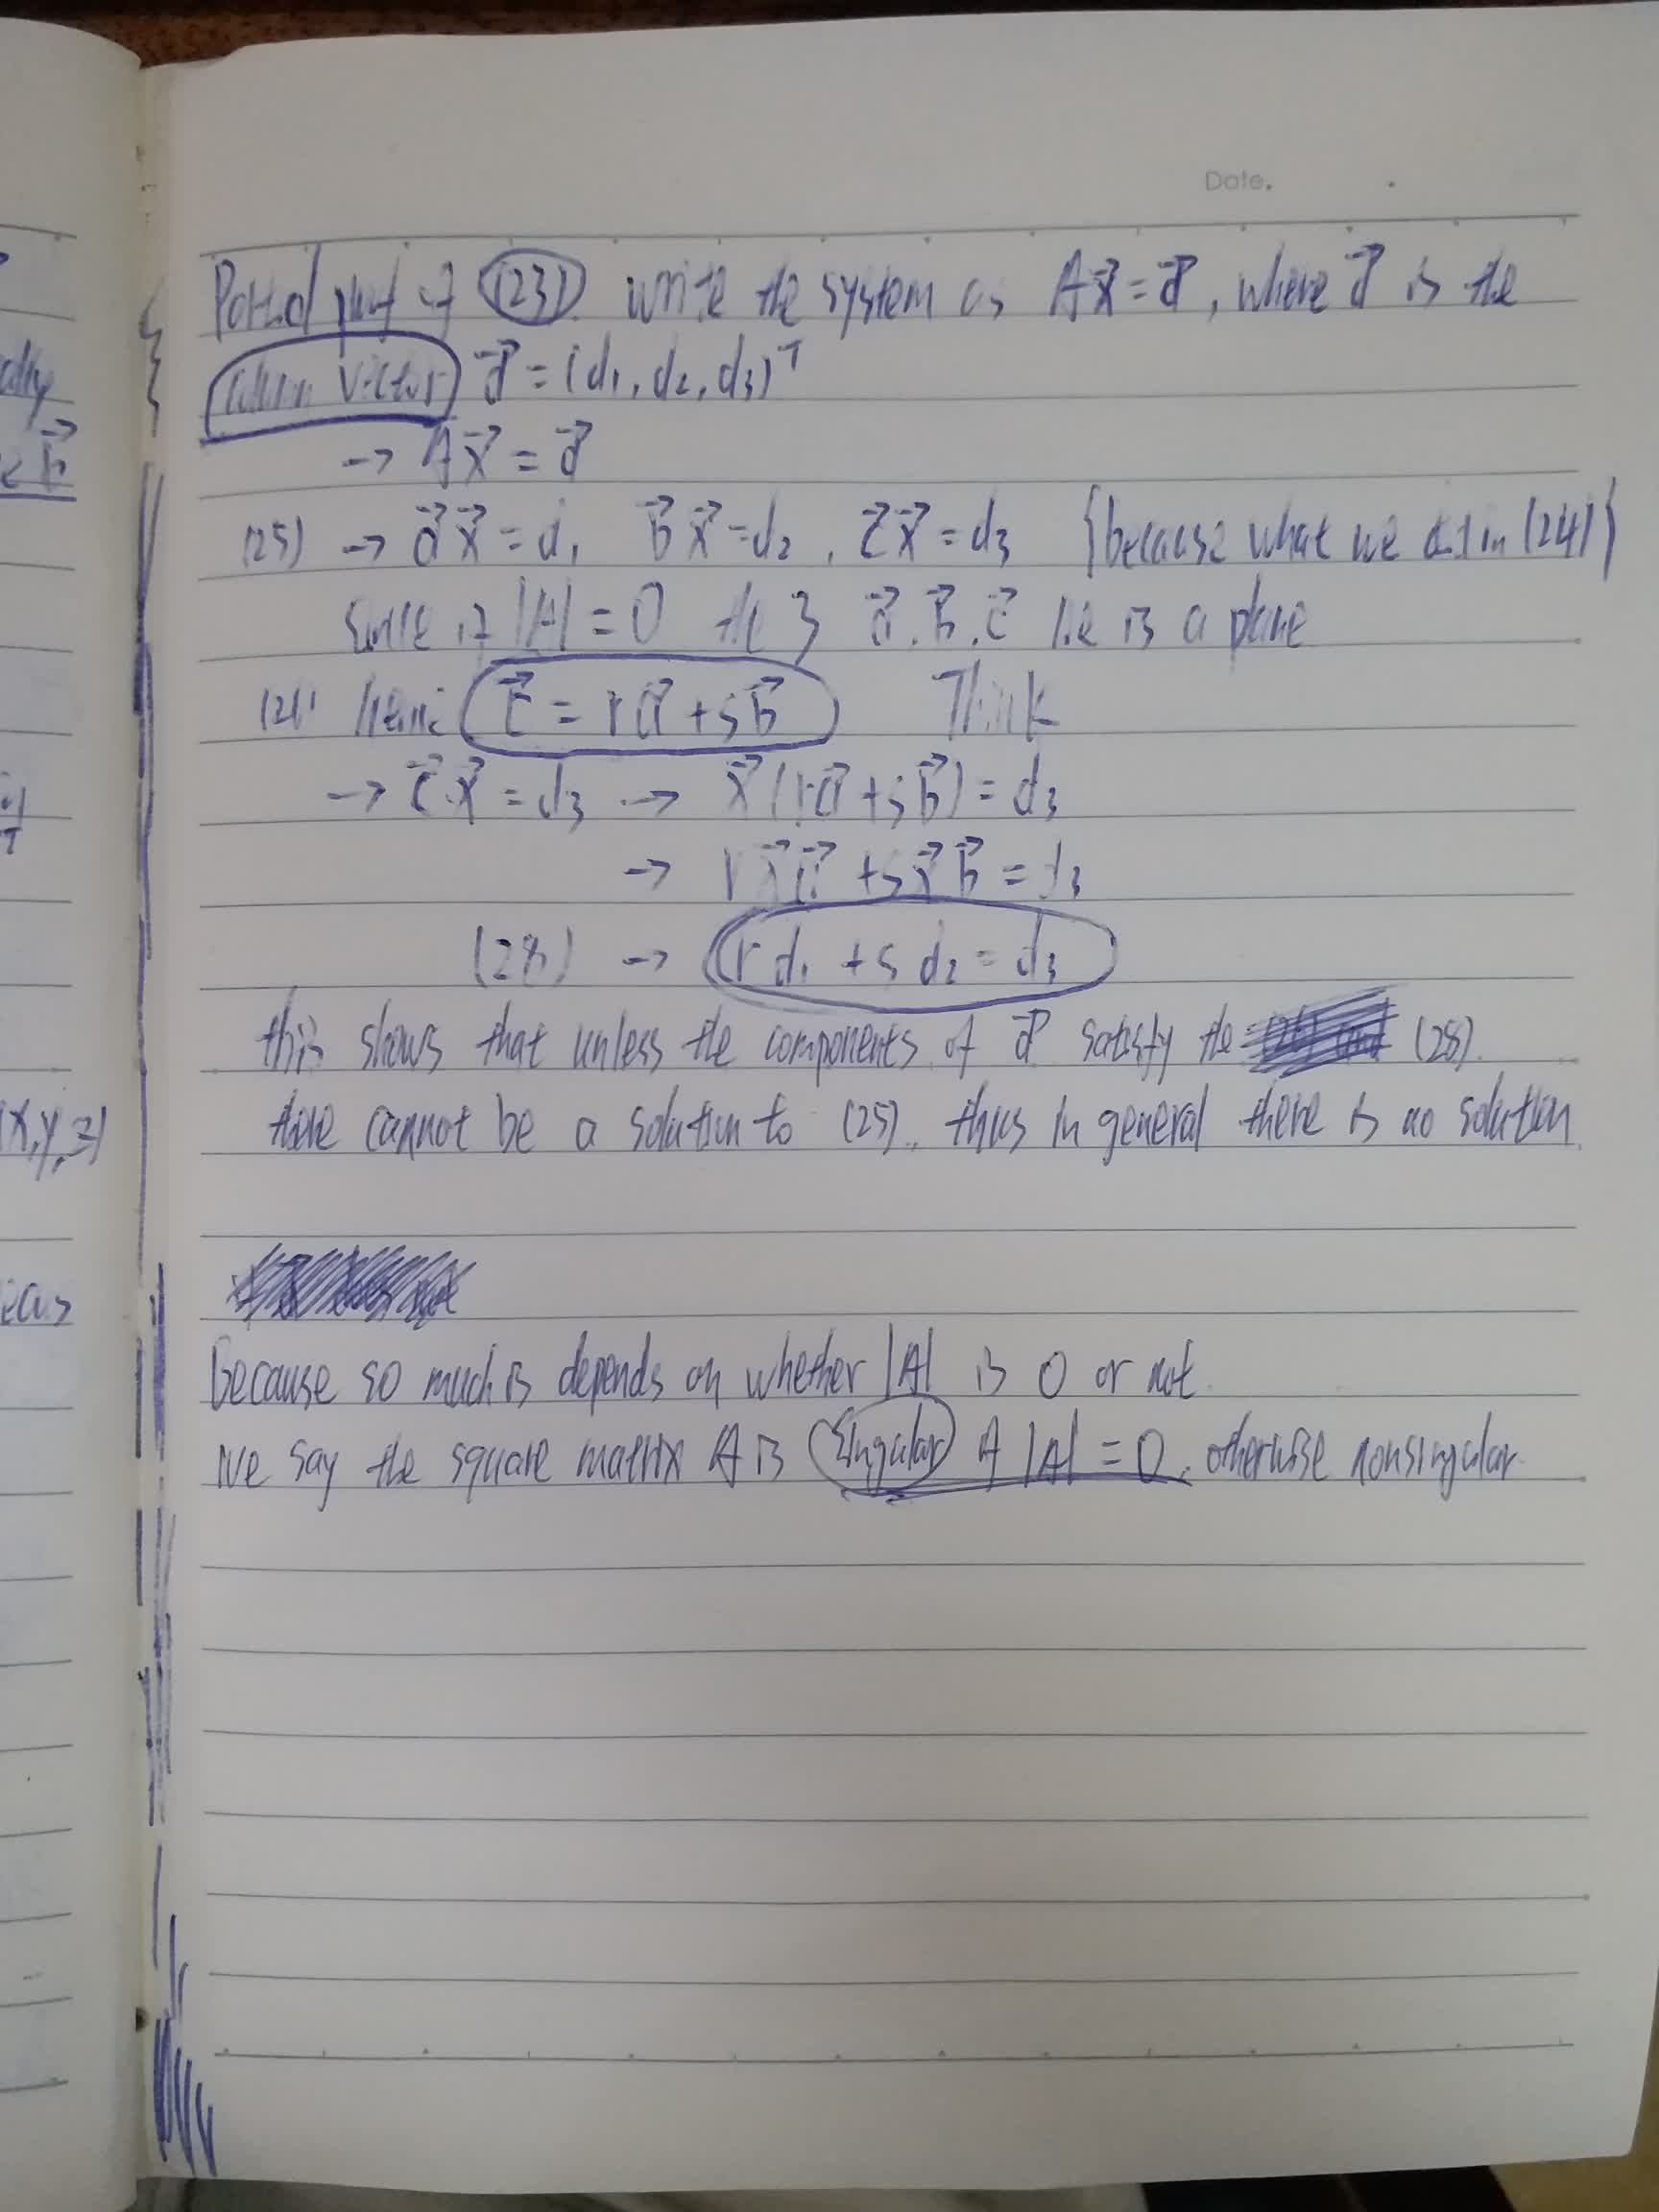 Date.
proof of (23). write the system as Ax⃗ = d⃗, where d⃗ is the
column vector d⃗ = (d₁, d₂, d₃)ᵀ
→ Ax⃗ = d⃗
(25) → a⃗x⃗ = d₁ b⃗x⃗ = d₂, c⃗x⃗ = d₃ {because what we did in (24)}
since if |A| = 0 the 3 a⃗, b⃗, c⃗ lie is a plane
c⃗ = ra⃗ + sb⃗ Think
→ c⃗x⃗ = d₃ → x⃗(ra⃗ + sb⃗) = d₃
→ rx⃗a⃗ + sx⃗b⃗ = d₃
(28) → rd₁ + sd₂ = d₃
this shows that unless the components of d⃗ satisfy the (28).
there cannot be a solution to (25). thus in general there is no solution
Because so much is depends on whether |A| is 0 or not.
we say the square matrix A is singular if |A| = 0. otherwise nonsingular
ally
b⃗
(x, y, z)